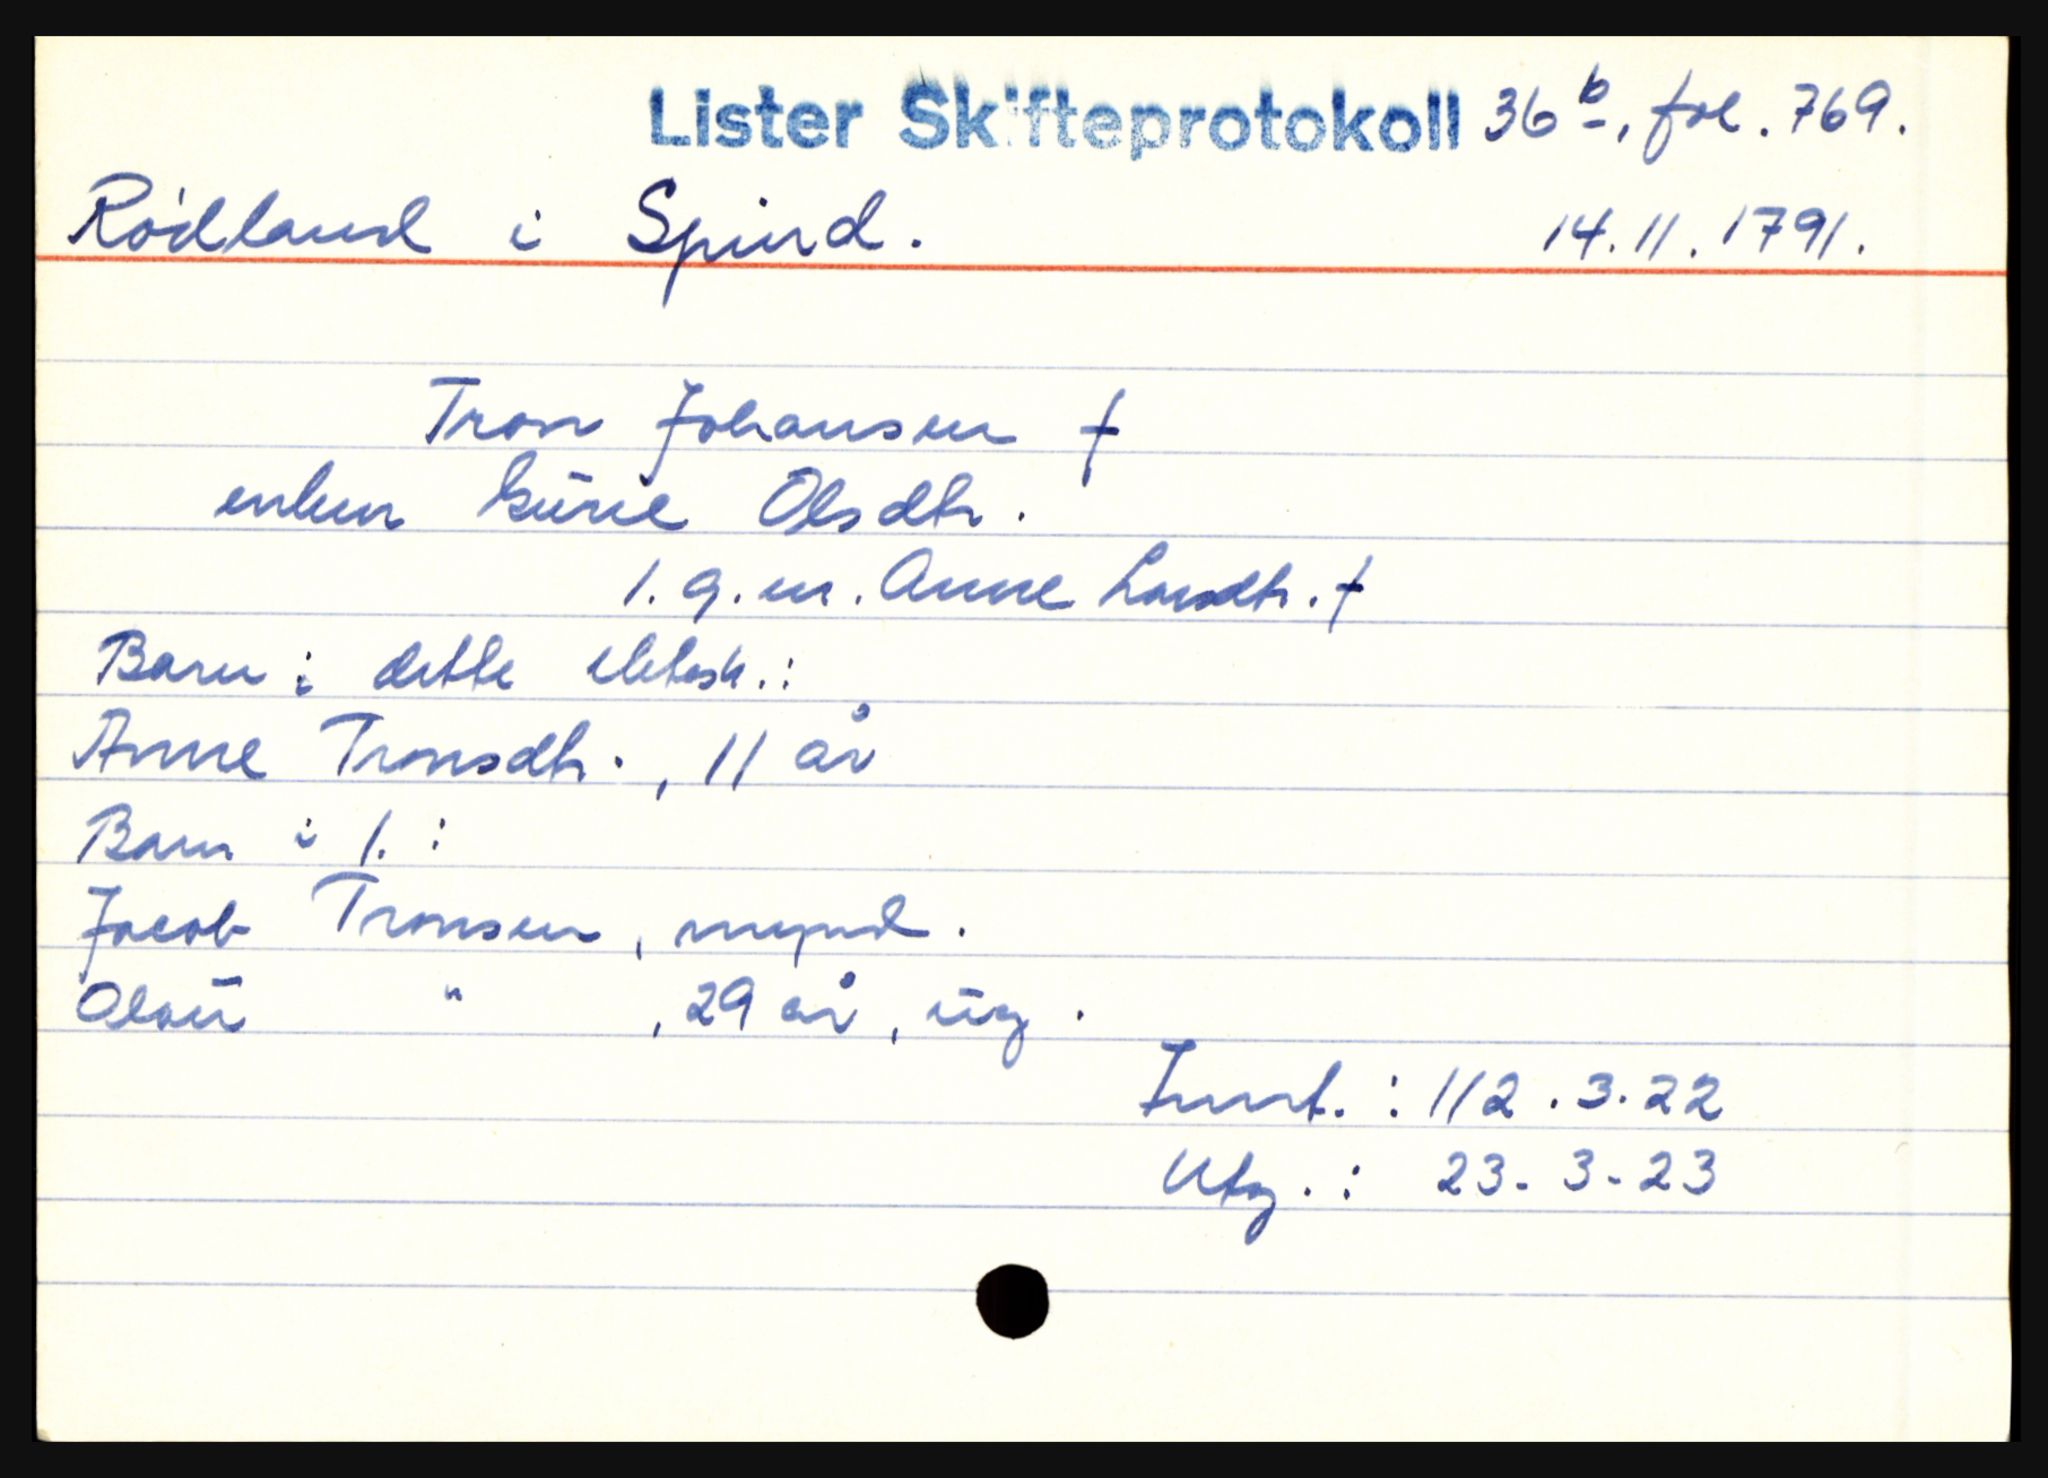 Lister Skifteprotokoll 36b, fol. 769.
Rødland i Spind. 14.11.1791.
Tron Johansen †
enken Gurie Olsdtr.
1. g. m. Anne Larsdtr. †
Barn i dette ektesk.:
Anne Tronsdtr., 11 år
Barn i 1. :
Jacob Tronsen, mynd.
Olau " , 29 år, ug.
Innt. : 112.3.22
Utg. : 23-3-23